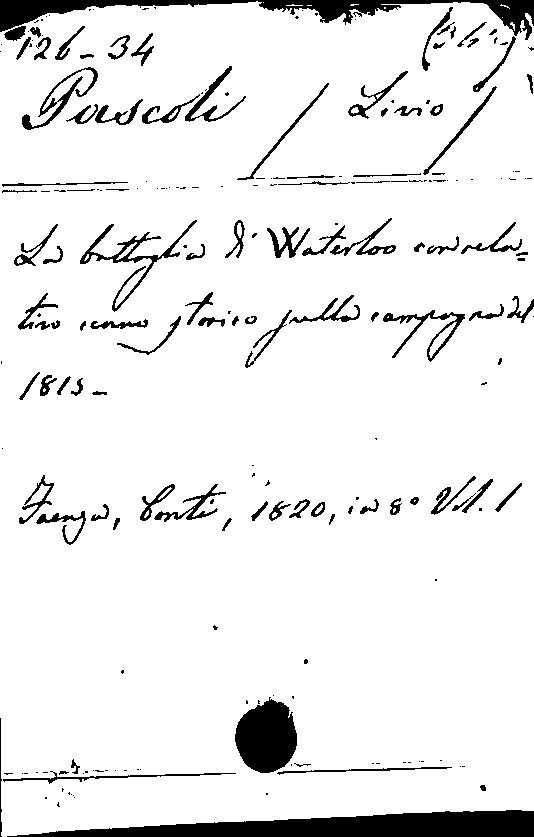 126-34
Pascoli / Livio /
La battaglia di Waterloo con rela=
tivo cenno storico sulla campagna del
1815-
Faenza, Conti, 1820, in 8° Vol. 1